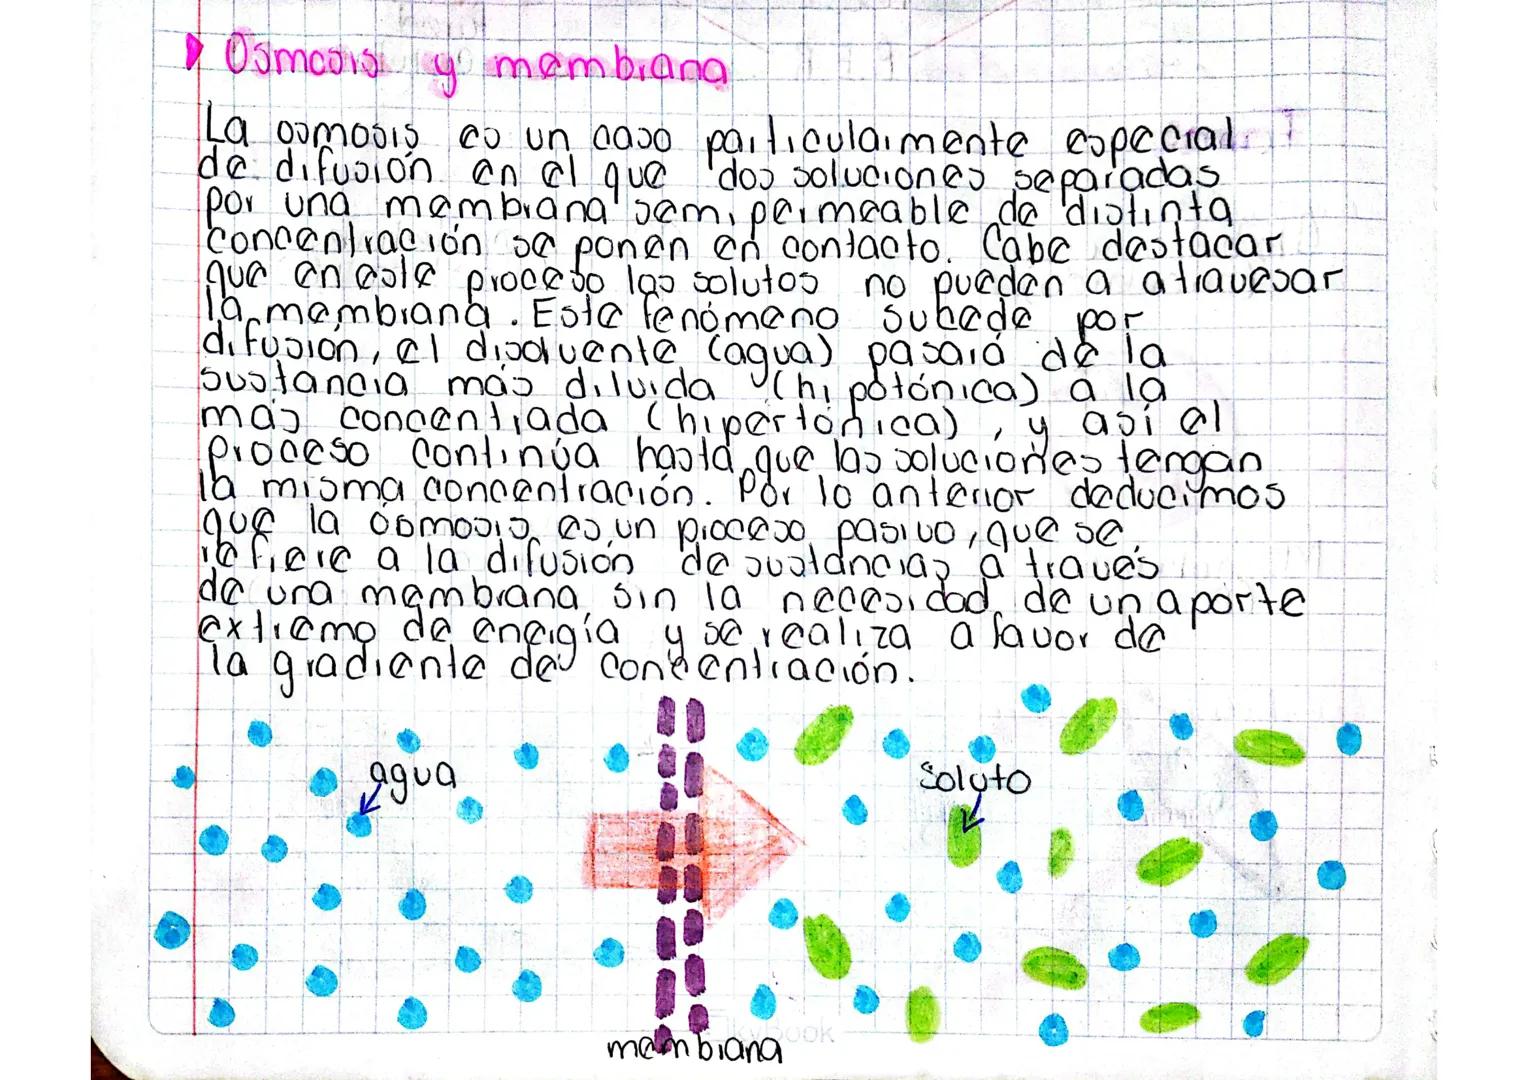 Osmosis y membrana
La osmosis es un caso particularmente especial
de difusión en el que dos soluciones separadas
por una membrana semipermeable de distinta
concentración se ponen en contacto. Cabe destacar
que en este proceso las solutos no pueden a atravesar
la membrana. Este fenómeno sucede por
difusión, el disolvente (agua) pasará de la
sustancia más diluida (hipotónica) a la
más concentrada (hipertónica), y así el
proceso continúa hasta que las soluciones tengan
la misma concentración. Por lo anterior deducimos
que la ósmosis es un proceso pasivo, que se
refiere a la difusión de sustancias a través
de una membrana sin la necesidad de un aporte
extremo de energía y se realiza a favor de
la gradiente de concentración.
agua
soluto
membrana